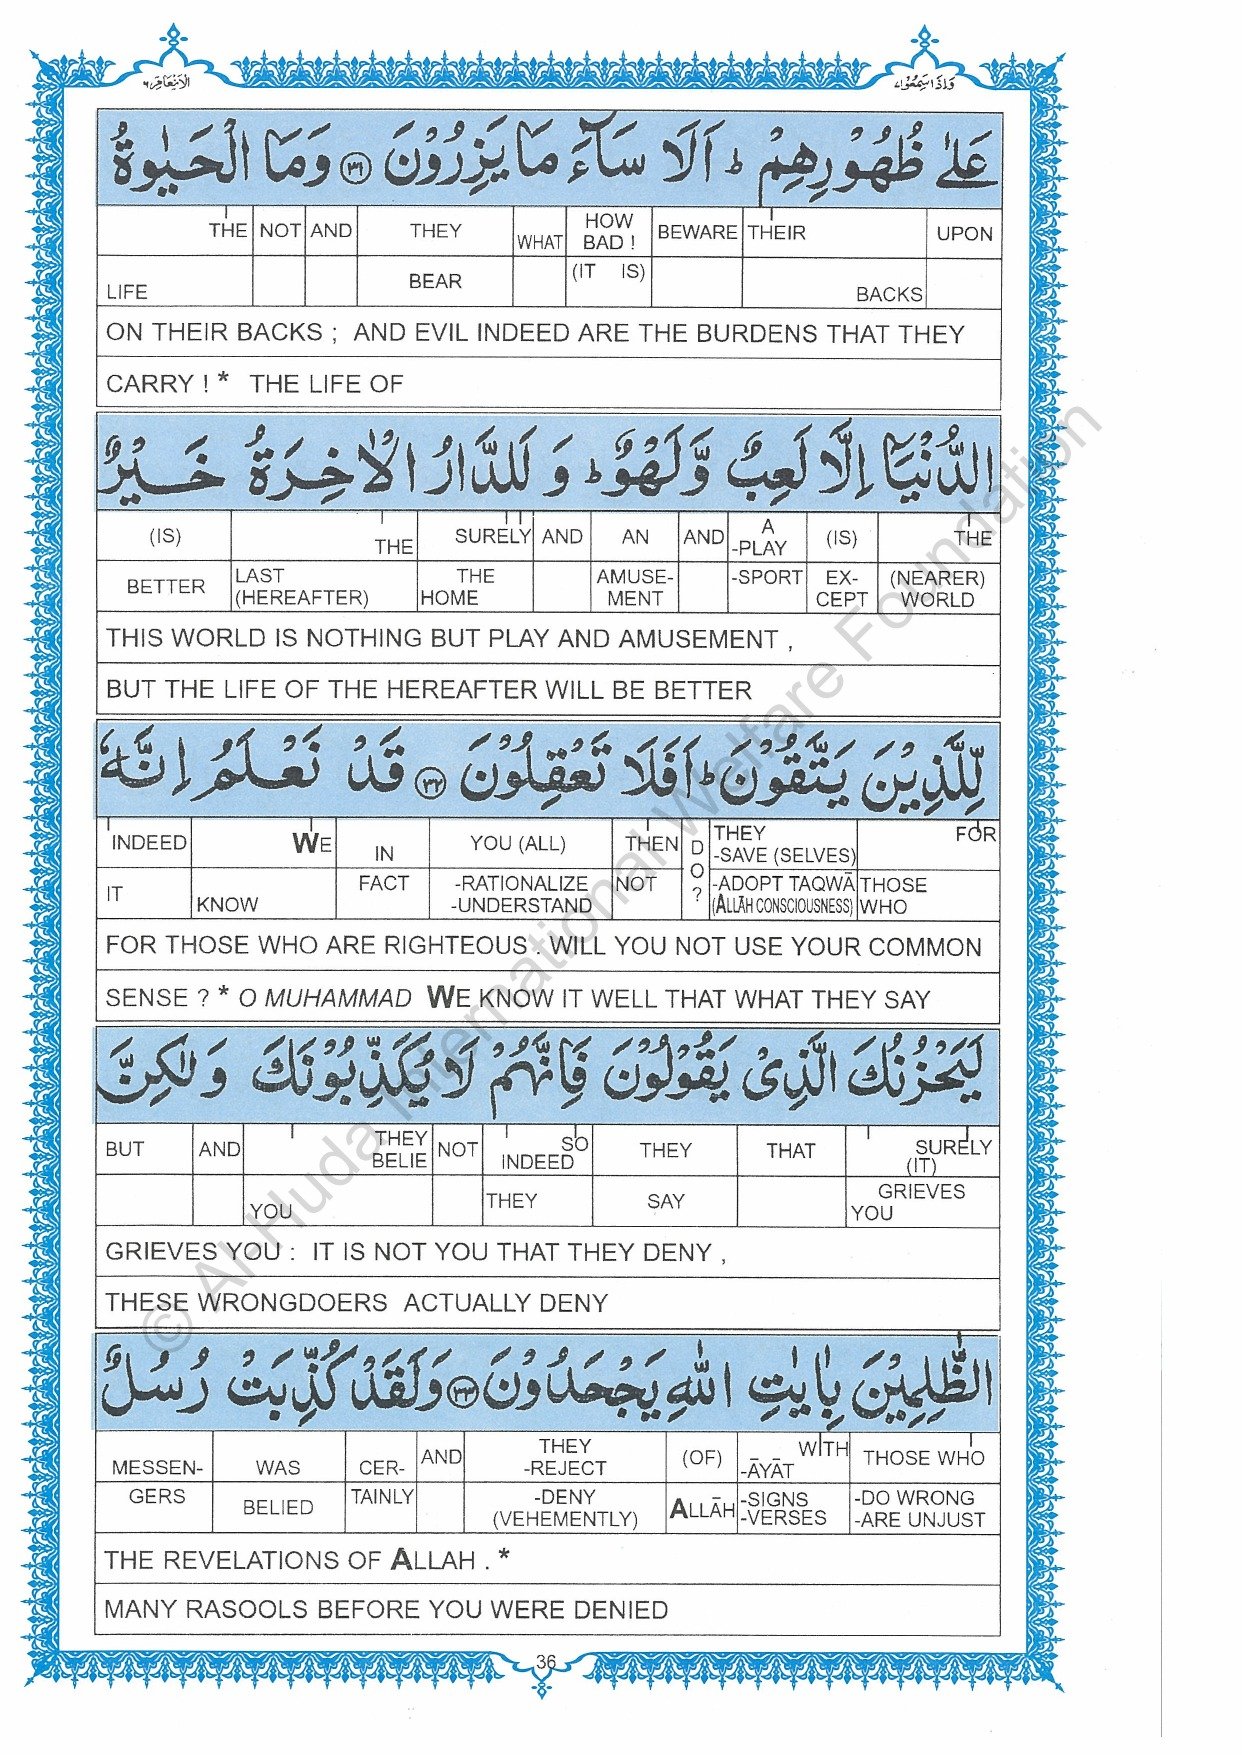 وَاِذَا سَمِعُوْا ٧
الْاَنْعَام ٦
عَلٰى ظُهُوْرِهِمْ ؕ اَلَا سَآءَ مَا يَزِرُوْنَ ﴿٣١﴾ وَمَا الْحَيٰوةُ
THE NOT AND THEY WHAT HOW BAD ! BEWARE THEIR UPON
LIFE BEAR (IT IS) BACKS
ON THEIR BACKS ; AND EVIL INDEED ARE THE BURDENS THAT THEY
CARRY ! * THE LIFE OF
الدُّنْيَاۤ اِلَّا لَعِبٌ وَّلَهْوٌ ؕ وَ لَلدَّارُ الْاٰخِرَةُ خَيْرٌ
(IS) THE SURELY AND AN AND A -PLAY (IS) THE
BETTER LAST (HEREAFTER) THE HOME AMUSE- MENT -SPORT EX- CEPT (NEARER) WORLD
THIS WORLD IS NOTHING BUT PLAY AND AMUSEMENT ,
BUT THE LIFE OF THE HEREAFTER WILL BE BETTER
لِّلَّذِيْنَ يَتَّقُوْنَ ؕ اَفَلَا تَعْقِلُوْنَ ﴿٣٢﴾ قَدْ نَعْلَمُ اِنَّهٗ
INDEED WE IN YOU (ALL) THEN DO? THEY -SAVE (SELVES) FOR
IT KNOW FACT -RATIONALIZE -UNDERSTAND NOT -ADOPT TAQWĀ (ALLĀH CONSCIOUSNESS) THOSE WHO
FOR THOSE WHO ARE RIGHTEOUS . WILL YOU NOT USE YOUR COMMON
SENSE ? * O MUHAMMAD WE KNOW IT WELL THAT WHAT THEY SAY
لَيَحْزُنُكَ الَّذِىْ يَقُوْلُوْنَ فَاِنَّهُمْ لَا يُكَذِّبُوْنَكَ وَ لٰكِنَّ
BUT AND THEY BELIE NOT SO INDEED THEY THAT SURELY (IT)
YOU THEY SAY GRIEVES YOU
GRIEVES YOU : IT IS NOT YOU THAT THEY DENY ,
THESE WRONGDOERS ACTUALLY DENY
الظّٰلِمِيْنَ بِاٰيٰتِ اللّٰهِ يَجْحَدُوْنَ ﴿٣٣﴾ وَلَقَدْ كُذِّبَتْ رُسُلٌ
MESSEN- WAS CER- AND THEY -REJECT (OF) WITH -ĀYĀT THOSE WHO
GERS BELIED TAINLY -DENY (VEHEMENTLY) ALLĀH -SIGNS -VERSES -DO WRONG -ARE UNJUST
THE REVELATIONS OF ALLAH . *
MANY RASOOLS BEFORE YOU WERE DENIED
36
© Al-Huda International Welfare Foundation